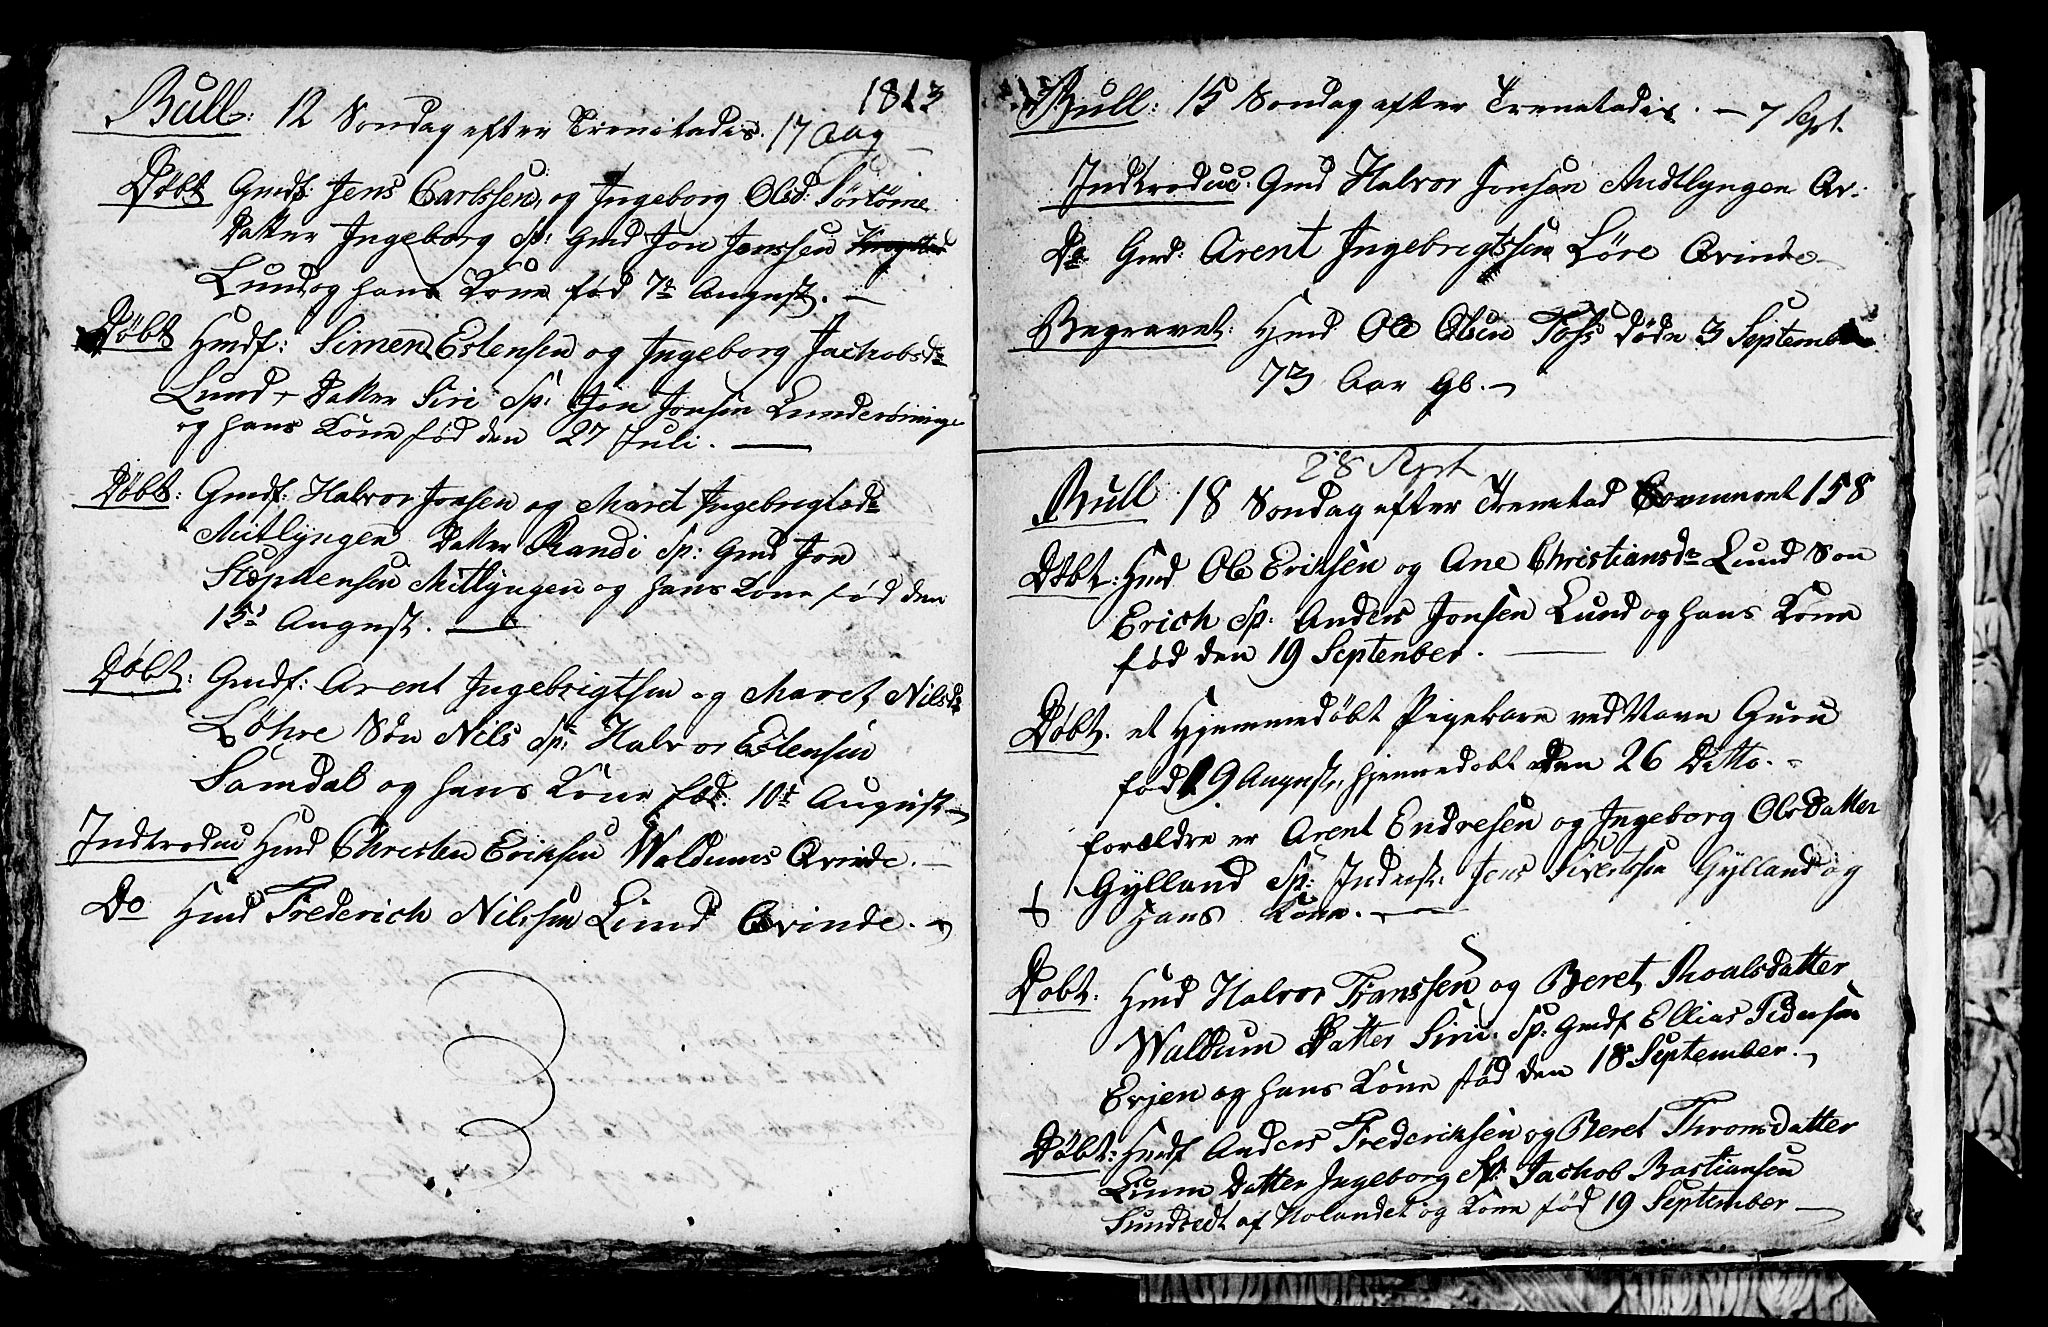 1813
Bull: 12 Søndag efter Trenitadis. 17 Aug
Døbt Gmdf: Jens Carlssen, og Ingeborg Olsd:
Datter Ingeborg Sp: Gmd Jon Jonssen
Lund og hans Kone fød 7de August. —
Døbt Hmdf: Simen Estensen og Ingeborg Jachobsdr
Lund — Datter Siri Sp: Jon Jonsen
og hans Kone fød den 27 Juli. —
Døbt: Gmdf: Halvor Jonsen og Maret Ingebrigtsdr
Mitlyngen Datter Randi Sp: Gmd Jon
Stephensen Mitlyngen og hans Kone fød den
15d August. —
Døbt: Gmdf: Arent Ingebrigtsen og Maret Nilsdr
Løhre Søn Nils Sp: Halvor Estensen
Samdal og hans Kone fød: 10d August —
Indtroduc Hmd Christen Eriksen Waldums Qvinde. —
Do Hmd Frederich Nilssen Lund Qvinde. —
Bull: 15 Søndag efter Trenetadis. — 7 Sept.
Indtroduc: Gmd Halvor Jonsen Midtlyngen Qv:
Do Gmd: Arent Ingebrigtssen Løre Qvinde —
Begravet: Hmd Ole Olsen døde 3 September
73 Aar gl. —
28 Sept
Bull 18 Søndag efter Trenetad Communt 158
Døbt: Hmd Ole Eriksen og Ane Christiansdr Lund Søn
Erich Sp: Anders Jonsen Lund og hans Kone
fød den 19 September. —
Døbt. et Hjemmedøbt Pigebarn ved Navn Guru
fød 19 August, hjemmedøbt den 26 Ditto. —
forældre er Arent Endresen og Ingeborg Olsdatter
Gylland Sp: Inderst: Jens Sivertssen Gylland og
hans Kone. —
Døbt. Hmd Halvor Franssen og Beret Thoalsdatter
Waldum Datter Sirie. Sp: Gmdf Ellias Pedersen
Evjen og hans Kone fød den 18 September. —
Døbt: Hmdf Anders Frederiksen og Beret Thronsdatter
Lium Datter Ingeborg Sp: Jachob Bastiansen
Sundsedt af Holandet og Kone fød 19 September —